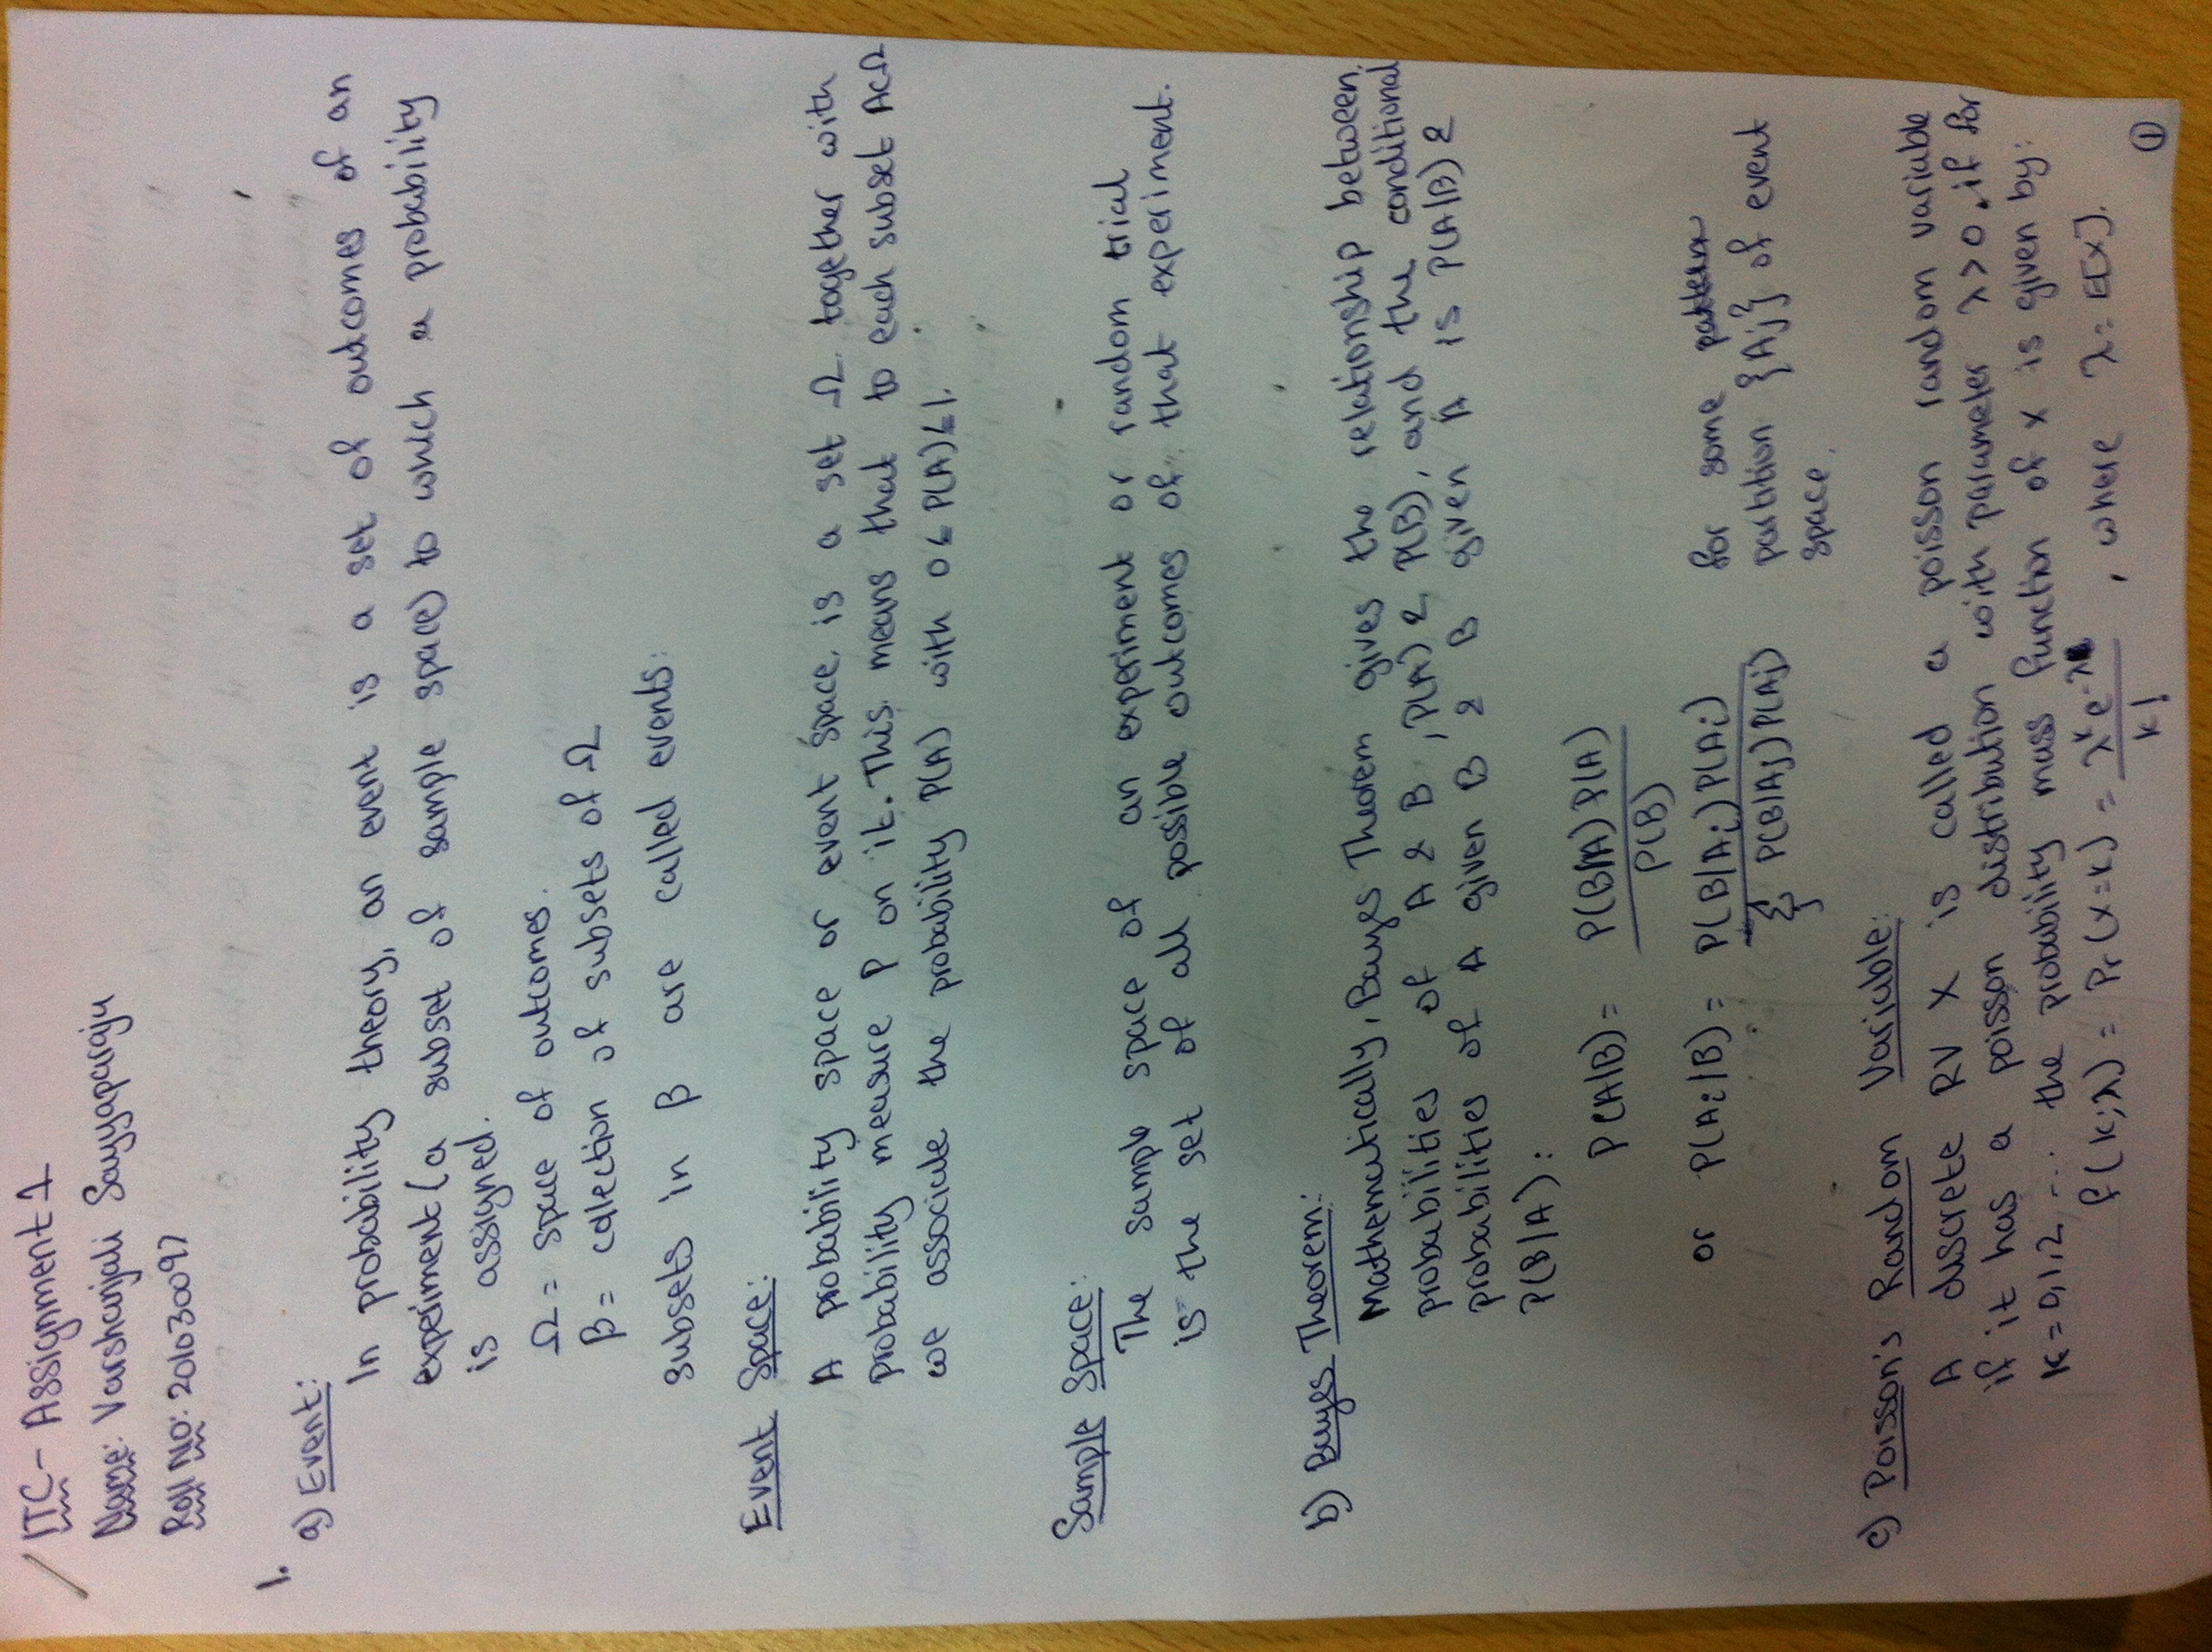 ITC - Assignment 1
Name: Varshanjali Sayyaparaju
Roll No: 201030097
1.
a) Event:
In probability theory, an event is a set of outcomes of an
experiment (a subset of sample space) to which a probability
is assigned.
Ω = space of outcomes.
β = collection of subsets of Ω
subsets in β are called events.
Event Space:
A probability space or event space is a set Ω together with
probability measure P on it. This means that to each subset A⊂Ω
we associate the probability P(A) with 0≤P(A)≤1.
Sample Space:
The sample space of an experiment or random trial
is the set of all possible outcomes of that experiment.
b) Bayes Theorem:
Mathematically, Bayes Theorem gives the relationship between
probabilities of A & B, P(A) & P(B), and the conditional
probabilities of A given B & B given A is P(A|B) &
P(B/A):
P(A|B) = P(B/A) P(A)
P(B)
or P(Ai/B) = P(B/Ai) P(Ai) for some
Σj P(B/Aj) P(Aj) partition {Aj} of event
space.
c) Poisson's Random Variable:
A discrete RV X is called a poisson random variable
if it has a poisson distribution with parameter λ>0, if for
k = 0,1,2 ... the probability mass function of x is given by:
f(k;λ) = Pr(x=k) = λ^k e^-λ , where λ = E[X].
k!
1